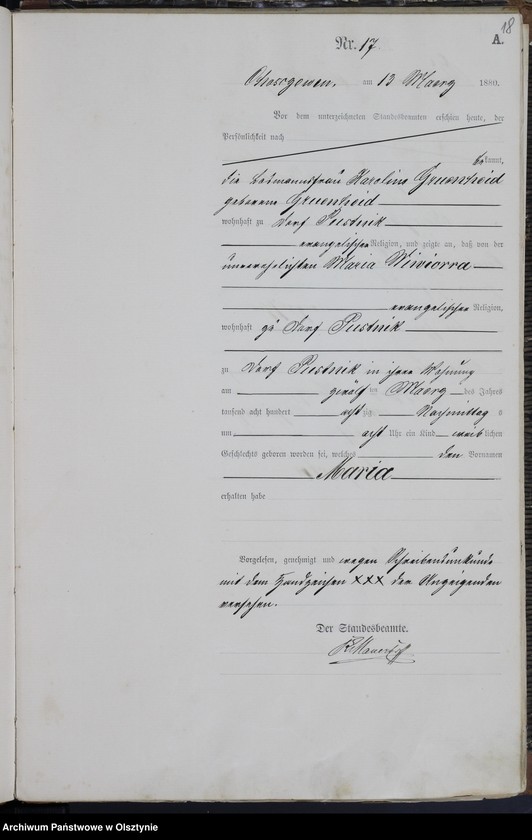 18
A.
Nr. 17.
am 13 Maerz 1880.
Vor dem unterzeichneten Standesbeamten erschien heute, der
Persönlichkeit nach
bekannt,
die Losmannsfrau Karoline Gruenheid
geborene Gruenheid
wohnhaft zu Dorf Pustnik
evangelischer Religion, und zeigte an, daß von der
unverehelichten Maria Wiviorra
evangelischer Religion,
wohnhaft zu Dorf Pustnik
zu Dorf Pustnik in ihrer Wohnung
am zwölf ten Maerz des Jahres
tausend acht hundert acht zig Nachmittag s
um acht Uhr ein Kind weib lichen
Geschlechts geboren worden sei, welches den Vornamen
Maria
erhalten habe
Vorgelesen, genehmigt und wegen Schreibensunkunde
mit dem Handzeichen XXX der Anzeigenden
versehen.
Der Standesbeamte.
Archiwum Państwowe w Olsztynie